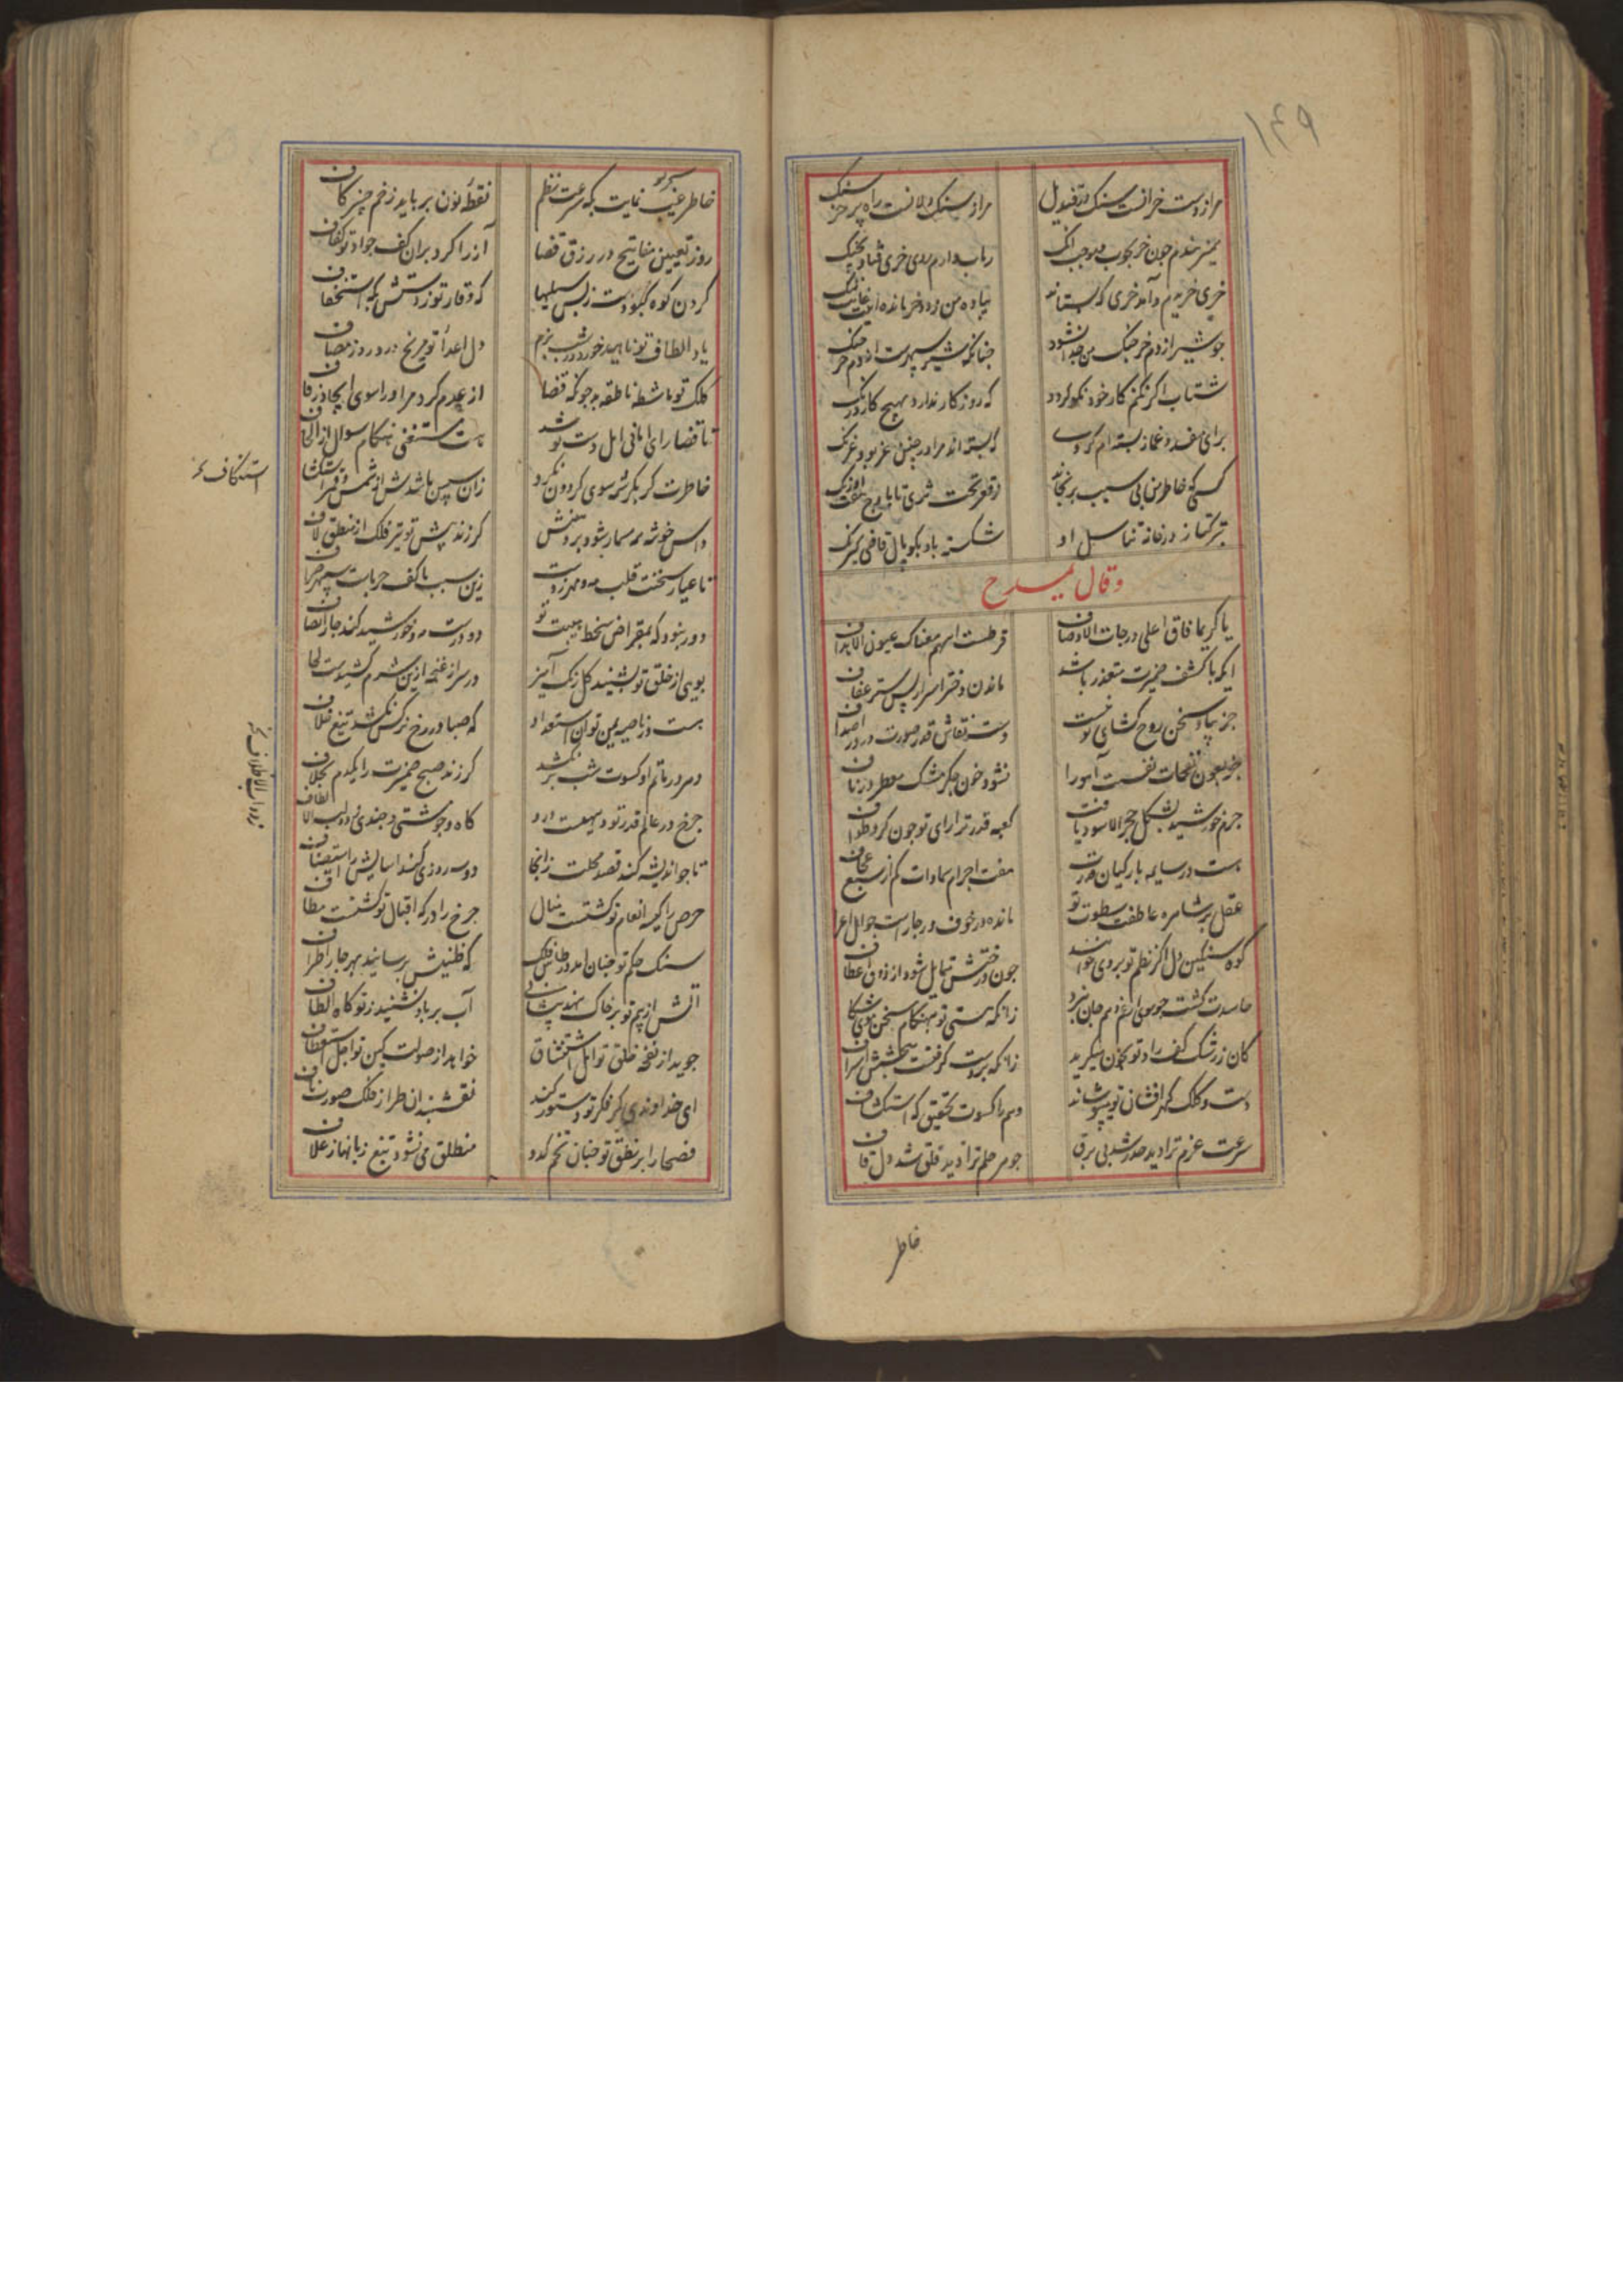 ۱۴۹
مرا ز دست خر انست سنک
مرا ز سنک راه پر خر سنک
خری خریدم و آمد خری که بستاند
پیاده من و خر مانده
جو شیر از دم خر جنک من جدا نشود
جنانکه شیر سپهرست از دم خر جنک
شتاب اگر نکنم کار خود نکو کردد
که روزکار ندارد بهیچ کار درنک
برای مفسد و غماز بسته ام
که بسته اند مرا در جنین
کسی که خاطر من بی سبب برنجاند
ز قعر تحت ثری تا باوج هفت اورنک
تیر کتا ز در خانه تناسل او
شکسته باد بکوپال قاضی
وقال یمدح
یا کریما فاق اعلی درجات الاوصاف
قرطست اسهم معناک عیون الاهداف
ایکه با کشف ضمیرت متعذر باشد
ماندن دختر اسرار پس ستر عفاف
جز بیاد سخن روح کشای تو نبست
دست نقاش قدر صورت در در اصداف
جز بعون نفحات نفست آهو را
نشود خون جکر مشک معطر در ناف
جرم خورشید بشکل حجر الاسود یافت
کعبه قدر ترا رای تو جون کرد طواف
هست در سایه بار کیان قدرت
هفت اجرام سماوات کم از سبع عجاف
عقل بر شاهره عاطفت و سطوت تو
مانده در خوف و رجا راست جو اهل اعراف
کوه سنکین دل اکر نظم تو بر وی خوانند
جون درختش متمایل شود از ذوق اعطاف
حاسدت کشت جو موی از غم و هم جان نبرد
زانکه هستی تو بهنکام سخن موی شکاف
کان ز رشک کف راد تو بخون میکرید
زانکه بر دست کرفتست ببخشش اسراف
دست و کلک کهر افشان تو میپوشاند
وهم را کسوت تحقیق که استکشاف
سرعت عزم ترا دید حذر شد پی برق
جوهر حلم ترا دید قلق شد دل قاف
خاطر
خاطر غیب نمایت بکه سرعت نظم
نقطه نون برباید ز خم جنبر کاف
روز تعیین مفاتیح در رزق قضا
آز را کرد بران کف جواد تو کفاف
کردن کوه کبودست ز بس سیلیها
که وقار تو زدستش بکه استخفاف
یاد الطاف تو ناهید خورد در شب بزم
دل اعدأ تو مریخ درد روز مصاف
کلک تو ماشطه ناطقه بد جو که قضا
از عدم کرد مر او را سوی ایجاد زفاف
تا قضا رای امانی اهل دست تو شد
هست مستغنی هنکام سوال از الحاف
خاطرت کر بکرشمه سوی کردون نکرد
زان سپس باشدش از شمس و قمر استنکاف
استنکاف نخـ
داس خوشه همه مسمار شود بر دهنش
کر زند پیش تو تیر فلک از منطق لاف
تا عیار سخنت قلب مه و مهر زدت
زین سبب با کف حرباست سپهر صراف
دور نبود که بمقراض سخط هیبت تو
دو درست مه و خورشید کند جار انصاف
بویی از خلق تو نشنید کل رنک آمیز
در سر از غنچه ازین شرم کشیدست لحاف
هست در ناصیه یمن تو آن استعداد
که صبا در رخ نرکس نکشد تیغ خلاف
دهر در ماتم او کسوت شب بر نکشد
کر زند صبح ضمیرت را یکدم بخلاف
جرخ در عالم قدر تو دو بیهست درو
کاه و جو شتی و جندی ذوات الالطاف
ذوات الاظلاف نخـ
تا جو اندیشه کند قصد محلت زانجا
دو سه روزی کند اسایش را استیناف
حرص را کیسه انعام تو کشتست منال
جرخ را درکه اقبال تو کشتست مطاف
سنک حکم تو جنان آمد در طاس فلک
که طنینش برسانید بهر جار اطراف
آتش از بیم تو بر خاک نهد پیشانی
آب بر باد نشیند ز تو کاه الطاف
جوید از نفخه خلق تو امل استنشاق
خواهد از صولت کین تو اجل استعطاف
ای خداوندی کز فکر تو دستور کند
نقشبندان طراز فلک صورت باف
فصحا را بر نطق تو جنان تخم کدو
منطلق می نشود تیغ زبانها ز غلاف